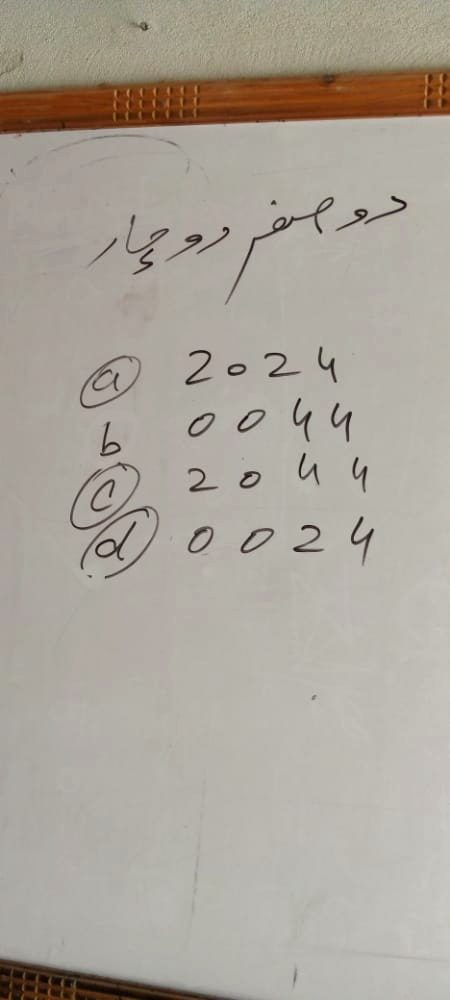 دو صفر دو چار
a 2024
b 0044
c 2044
d 0024